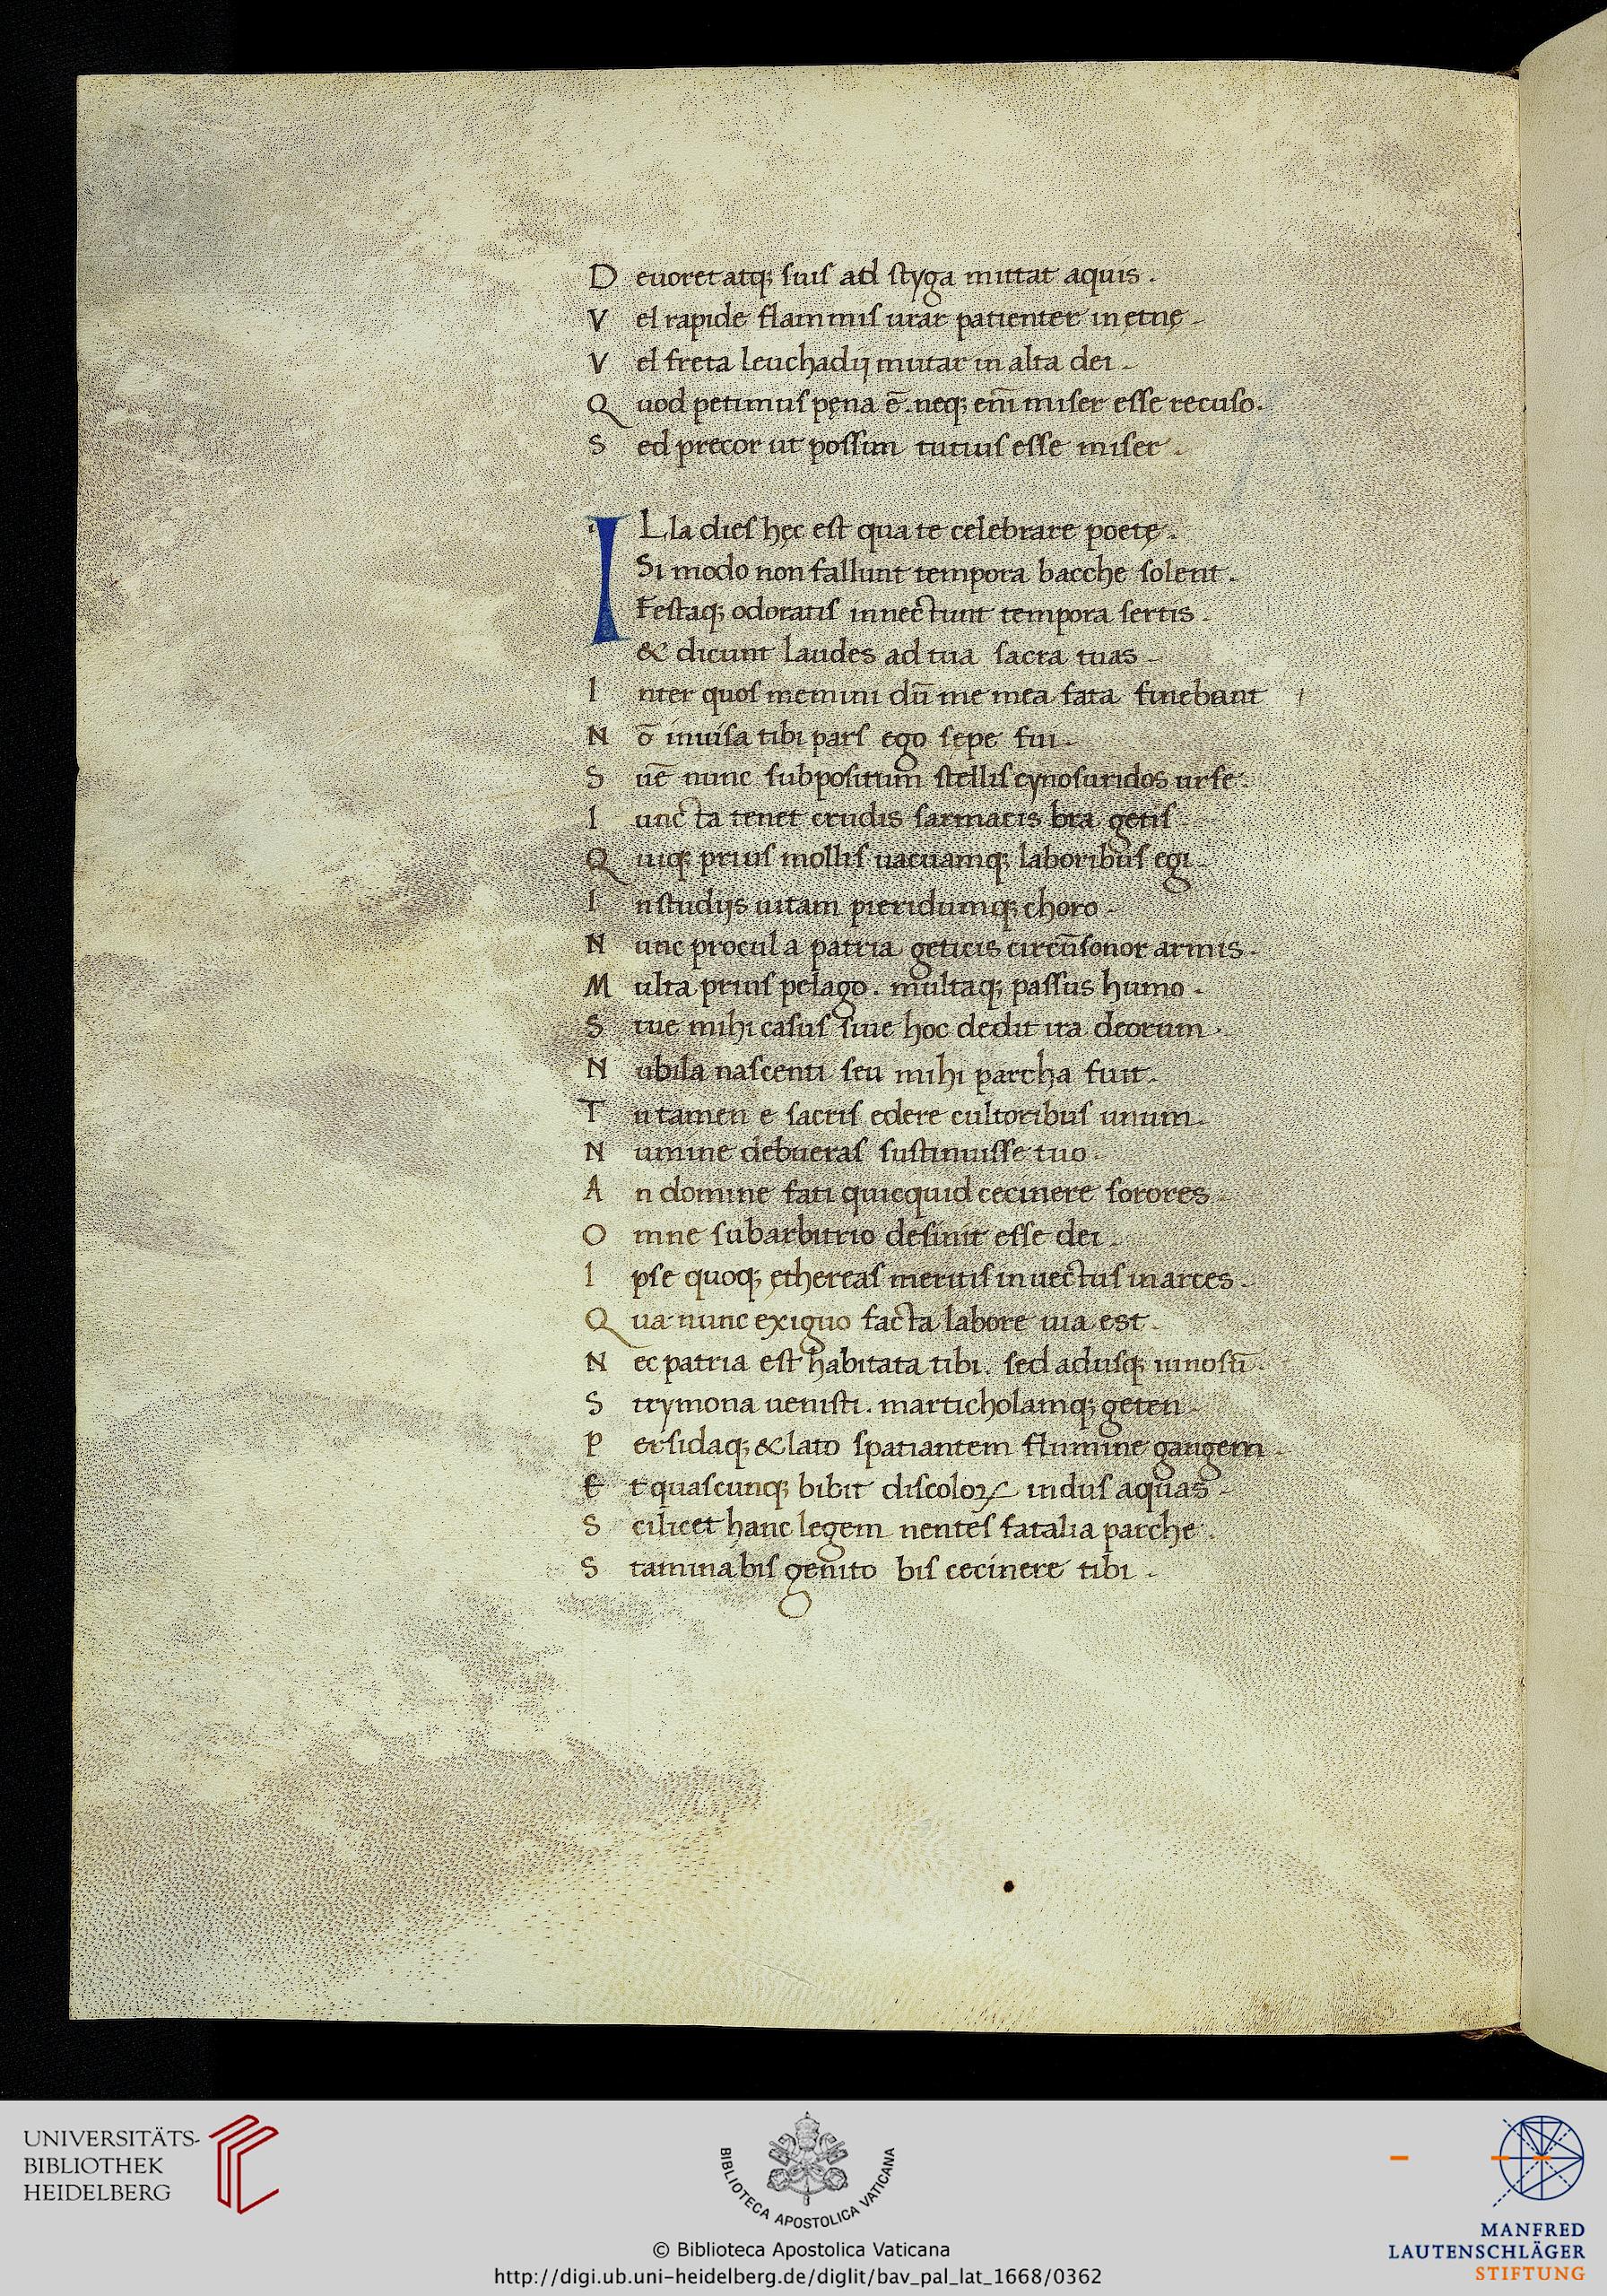 D euoret atq; suis ad styga mittat aquis .
V el rapide flammis urar patienter in ętnę .
V el freta leuchadij mittar in alta dei .
Q uod petimus pęna ē . neq; eni᷄ miser esse recuso .
S ed precor ut possim tutius esse miser .
I Lla dies hęc est qua te celebrare poetę .
Si modo non fallunt tempora bacche solent .
Festaq; odoratis innectunt tempora sertis .
& dicunt laudes ad tua sacra tuas .
I nter quos memini dū me mea fata sinebant
N ō inuisa tibi pars ego sepe fui .
S uē nunc subpositum stellis cynosuridos urse .
I uncta tenet crudis sarmatis bra getis
Q uiq; prius mollis uacuamq; laboribus egi .
I n studijs uitam pieridumq; choro .
N unc procul a patria geticis circūsonor armis .
M ulta prius pelago . multaq; passus humo .
S iue mihi casus siue hoc dedit ira deorum .
N ubila nascenti seu mihi parcha fuit .
T u tamen e sacris edere cultoribus unum .
N umine debueras sustinuisse tuo .
A n domine fati quicquid cecinere sorores .
O mne sub arbitrio desinit esse dei .
I pse quoq; ęthereas meritis inuectus in arces .
Q ua nunc exiguo facta labore uia est .
N ec patria est habitata tibi . sed adusq; niuosū .
S trymona uenisti . marticholamq; geten .
P ersidaq; & lato spatiantem flumine gangem .
E t quascunq; bibit discolor indus aquas .
S cilicet hanc legem nentes fatalia parche .
S tamina bis genito bis cecinere tibi .
UNIVERSITÄTS-
BIBLIOTHEK
HEIDELBERG
BIBLIOTECA APOSTOLICA VATICANA
© Biblioteca Apostolica Vaticana
http://digi.ub.uni-heidelberg.de/diglit/bav_pal_lat_1668/0362
MANFRED
LAUTENSCHLÄGER
STIFTUNG